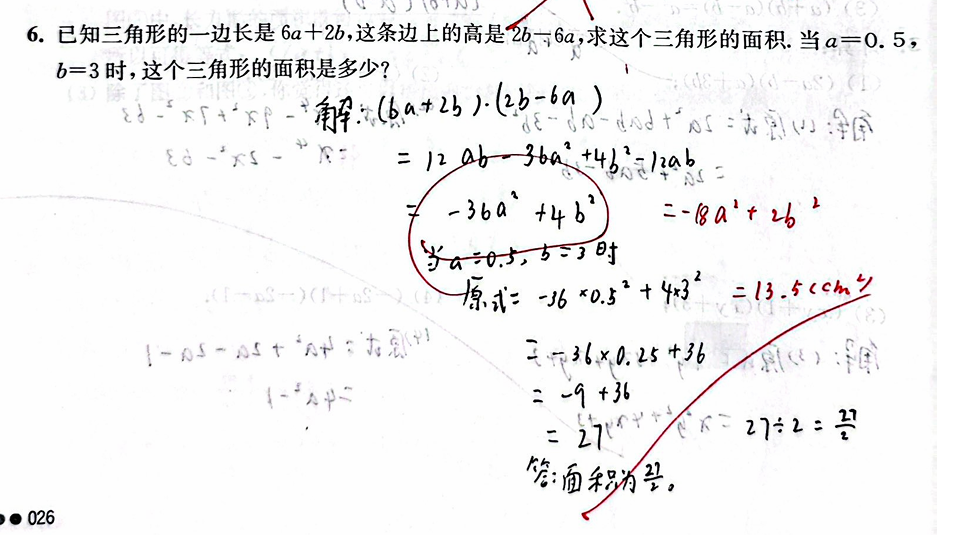 6. 已知三角形的一边长是 6a+2b,这条边上的高是 2b-6a,求这个三角形的面积. 当 a=0.5,
b=3 时,这个三角形的面积是多少?
解:(6a+2b)·(2b-6a)
= 12ab - 36a²+4b²-12ab
= -36a²+4b² =-18a²+2b²
当a=0.5, b=3时
原式= -36×0.5²+4×3² =13.5(cm²)
= -36×0.25+36
= -9+36
= 27 27÷2=27/2
答:面积为27/2。
026